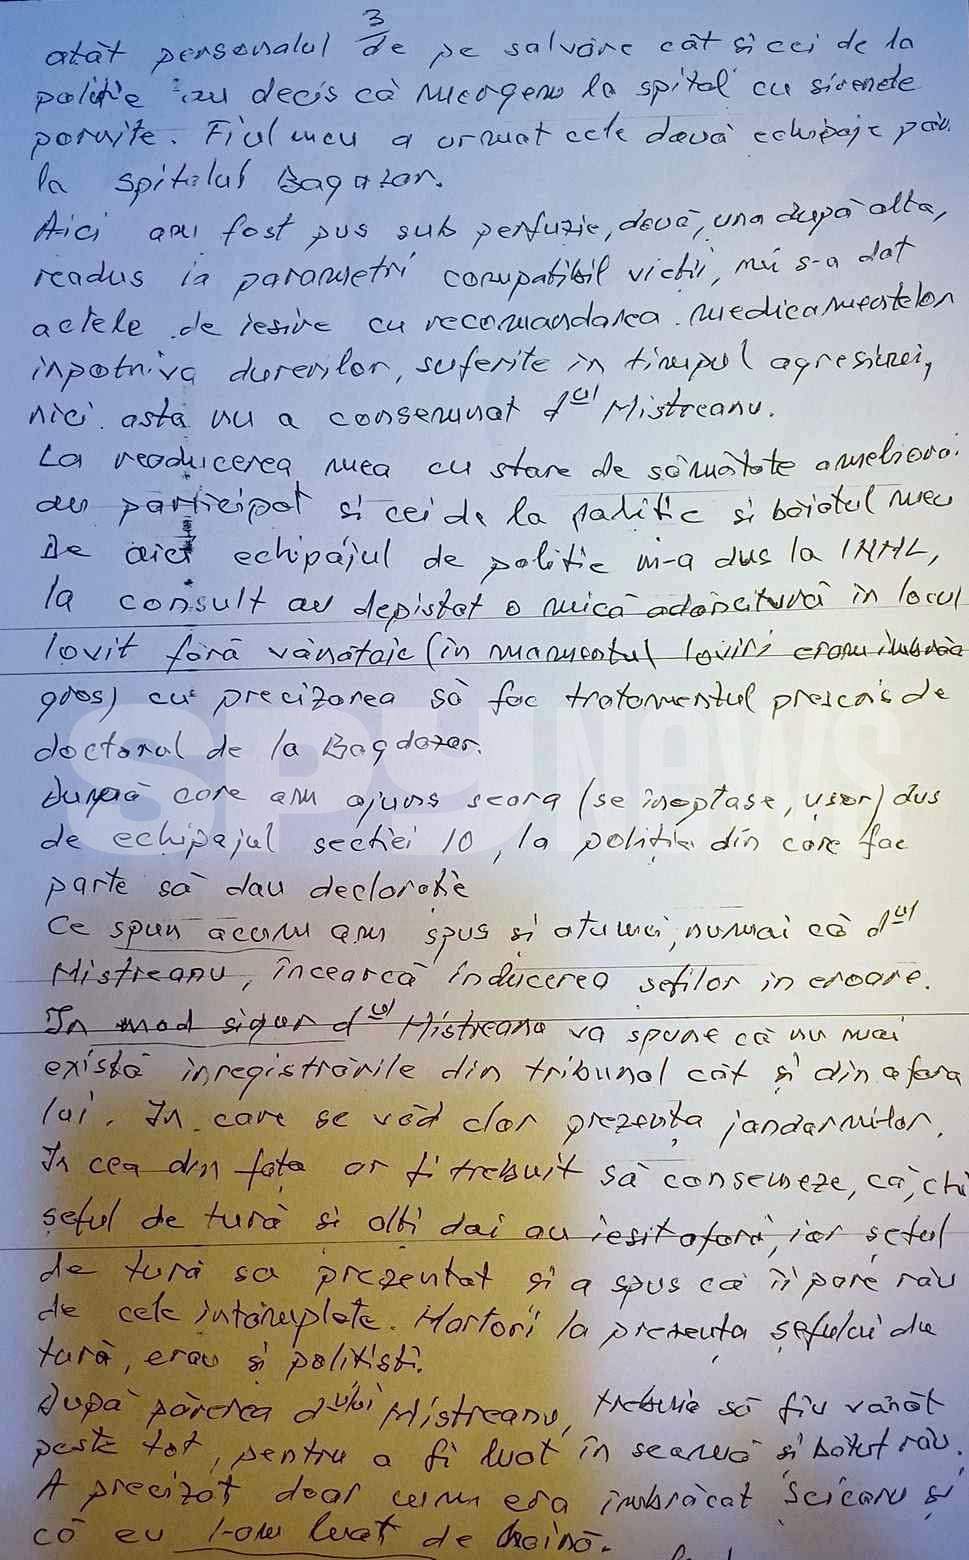 3
atât personalul de pe salvare cât si cei de la
politie au decis că mergem la spital cu sirenele
pornite. Fiul meu a urmat cele două echipaje pân.
la spitalul Bagdazar.
Aici am fost pus sub perfuzie, două, una după alta,
readus la parametri compatibil vietii, mi s-a dat
actele de iesire cu recomandarea medicamentelor
inpotriva durerilor, suferite in timpul agresiunei,
nici asta nu a consemnat dul Mistreanu.
La readucerea mea cu stare de sănătate ameliora.
au participat si cei de la politie si băiatul meu
De aici echipajul de politie m-a dus la INML,
la consult au depistat o mică adâncitură in locul
lovit fără vânătaie (in momentul lovirii eram imbrăca
gros) cu precizarea să fac tratamentul prescris de
doctorul de la Bagdazar.
După care am ajuns seara (se inoptase, usor) dus
de echipajul sectiei 10, la politia din care fac
parte să dau declaratie
Ce spun acum am spus si atunci, numai că dul
Mistreanu, încearcă inducerea sefilor in eroare.
In mod sigur dul Mistreanu va spune că nu mai
există inregistrările din tribunal cât si din afara
lui. In care se văd clar prezența jandarmilor.
In cea din fata ar fi trebuit să consemneze, că, chi
seful de tură si alti doi au iesit afară, iar seful
de tură sa prezentat si a spus că îi pare rău
de cele intâmplate. Martori la prezența sefului de
tură, erau si politisti.
După părerea dului Mistreanu, trebuia să fiu vânăt
peste tot, pentru a fi luat în seamă si bătut rău.
A precizat doar cum era imbrăcat Seicaru si
că eu l-am luat de haină.